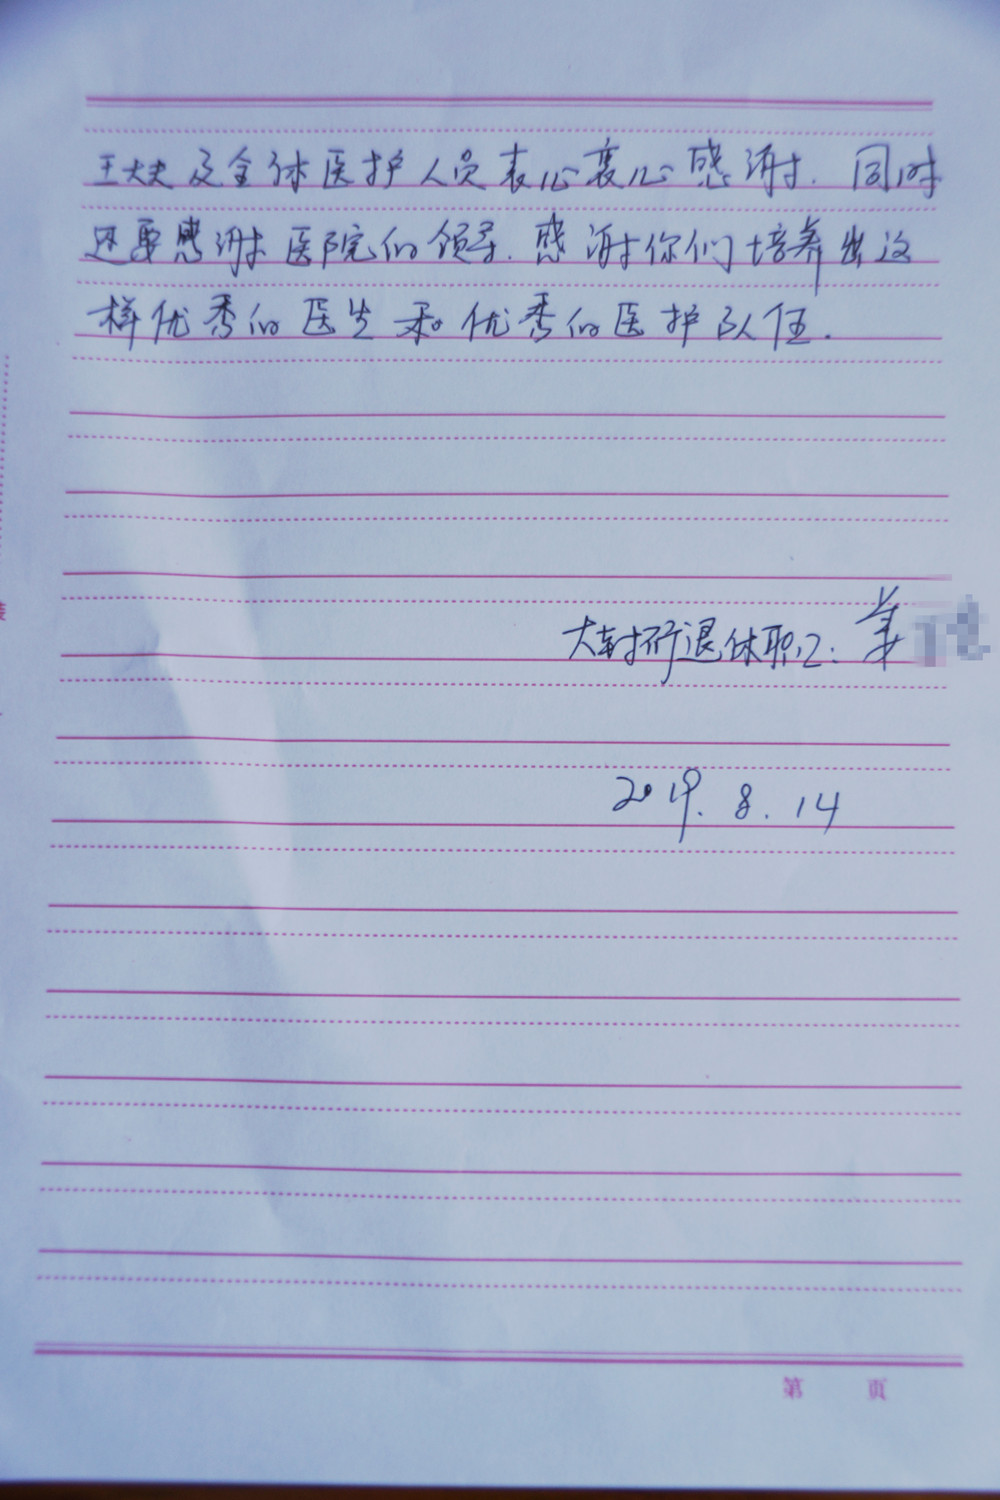 王大夫及全体医护人员表心衷心感谢.同时
还要感谢医院的领导.感谢你们培养出这
样优秀的医生和优秀的医护队伍.
大封所退休职工:姜
2019.8.14
第 页